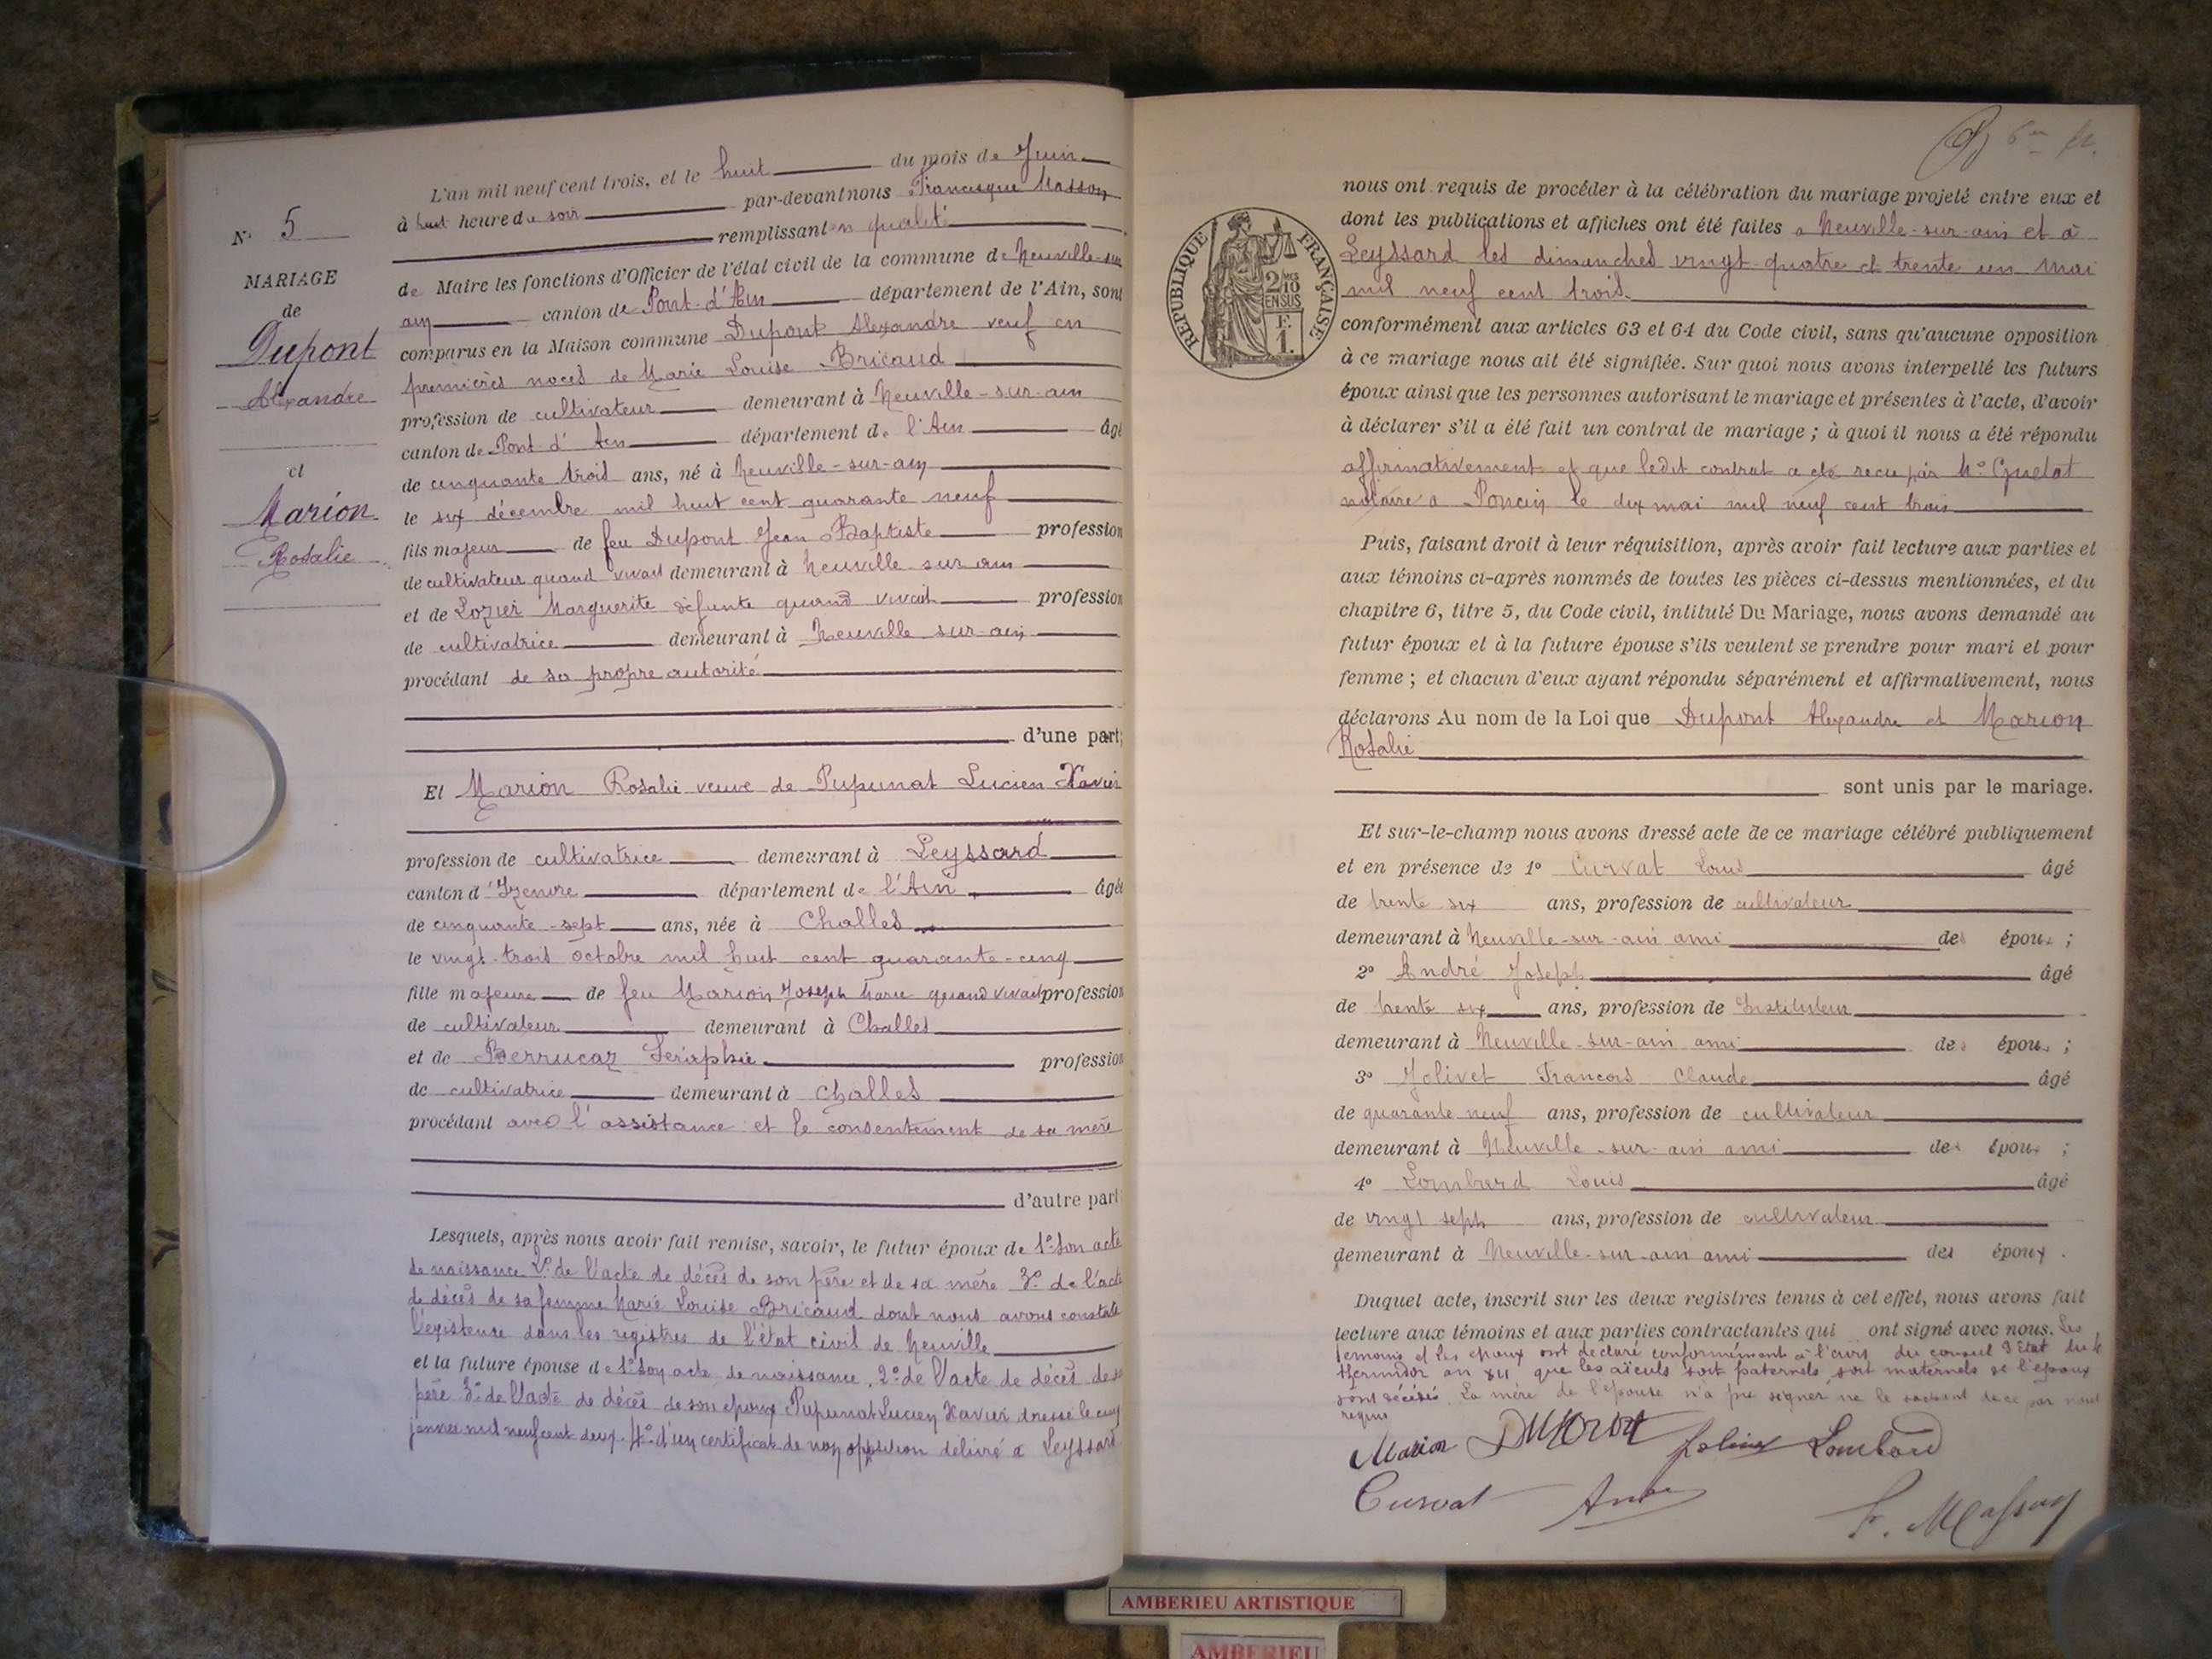 N° 5
MARIAGE
de
Dupont
Alexandre
et
Marion
Rosalie
L'an mil neuf cent trois, et le huit du mois de Juin
à huit heure du soir par-devant nous Francisque Masson
remplissant en qualité
de Maire les fonctions d'Officier de l'état civil de la commune de Neuville-sur
ain canton de Pont-d'Ain département de l'Ain, sont
comparus en la Maison commune Dupont Alexandre veuf en
premières noces de Marie Louise Bricaud
profession de cultivateur demeurant à Neuville-sur-ain
canton de Pont d'Ain département de l'Ain âgé
de cinquante trois ans, né à Neuville-sur-ain
le six décembre mil huit cent quarante neuf
fils majeur de feu Dupont Jean Baptiste profession
de cultivateur quand vivait demeurant à Neuville sur ain
et de Lozier Marguerite défunte quand vivait profession
de cultivatrice demeurant à Neuville sur-ain
procédant de sa propre autorité
d'une part;
Et Marion Rosalie veuve de Pupunat Lucien Xavier
profession de cultivatrice demeurant à Leyssard
canton d'Izenore département de l'Ain âgée
de cinquante-sept ans, née à Challes
le vingt-trois octobre mil huit cent quarante-cinq
fille majeure de feu Marion Joseph Marie quand vivait profession
de cultivateur demeurant à Challes
et de Berrucaz Séraphie profession
de cultivatrice demeurant à Challes
procédant avec l'assistance et le consentement de sa mère
d'autre part
Lesquels, après nous avoir fait remise, savoir, le futur époux de 1° son acte
de naissance 2° de l'acte de décès de son père et de sa mère 3° de l'acte
de décès de sa femme Marie Louise Bricaud dont nous avons constaté
l'existence dans les registres de l'état civil de Neuville
et la future épouse de 1° son acte de naissance, 2° de l'acte de décès de son
père 3° de l'acte de décès de son époux Pupunat Lucien Xavier dressé le cinq
janvier mil neuf cent deux. 4° d'un certificat de non opposition délivré à Leyssard
nous ont requis de procéder à la célébration du mariage projeté entre eux et
dont les publications et affiches ont été faites a Neuville-sur-ain et à
Leyssard les dimanches vingt-quatre et trente un mai
mil neuf cent trois
RÉPUBLIQUE FRANÇAISE
2/10 EN SUS
F. 1.
conformément aux articles 63 et 64 du Code civil, sans qu'aucune opposition
à ce mariage nous ait été signifiée. Sur quoi nous avons interpellé les futurs
époux ainsi que les personnes autorisant le mariage et présentes à l'acte, d'avoir
à déclarer s'il a été fait un contrat de mariage ; à quoi il nous a été répondu
affirmativement et que ledit contrat a été recu par Me Guetat
notaire a Poncin le dix mai mil neuf cent trois
Puis, faisant droit à leur réquisition, après avoir fait lecture aux parties et
aux témoins ci-après nommés de toutes les pièces ci-dessus mentionnées, et du
chapitre 6, titre 5, du Code civil, intitulé Du Mariage, nous avons demandé au
futur époux et à la future épouse s'ils veulent se prendre pour mari et pour
femme ; et chacun d'eux ayant répondu séparément et affirmativement, nous
déclarons Au nom de la Loi que Dupont Alexandre et Marion
Rosalie
sont unis par le mariage.
Et sur-le-champ nous avons dressé acte de ce mariage célébré publiquement
et en présence de 1° Curvat Louis âgé
de trente six ans, profession de cultivateur
demeurant à Neuville-sur-ain ami des époux ;
2° André Joseph âgé
de trente six ans, profession de Instituteur
demeurant à Neuville-sur-ain ami des époux ;
3° Jolivet Francois Claude âgé
de quarante neuf ans, profession de cultivateur
demeurant à Neuville-sur-ain ami des époux ;
4° Lombard Louis âgé
de vingt sept ans, profession de cultivateur
demeurant à Neuville-sur-ain ami des époux.
Duquel acte, inscrit sur les deux registres tenus à cet effet, nous avons fait
lecture aux témoins et aux parties contractantes qui ont signé avec nous. Les
témoins et les epoux ont declaré conformément a l'avis du conseil d'Etat du 4
thermidor an XII que les aïeuls soit paternels soit maternels de l'epoux
sont décédés. La mère de l'épouse n'a pu signer ne le sachant de ce par nous
requise
Marion Dupont Jolivet Lombard
Curvat André F. Masson
AMBERIEU ARTISTIQUE
AMBERIEU